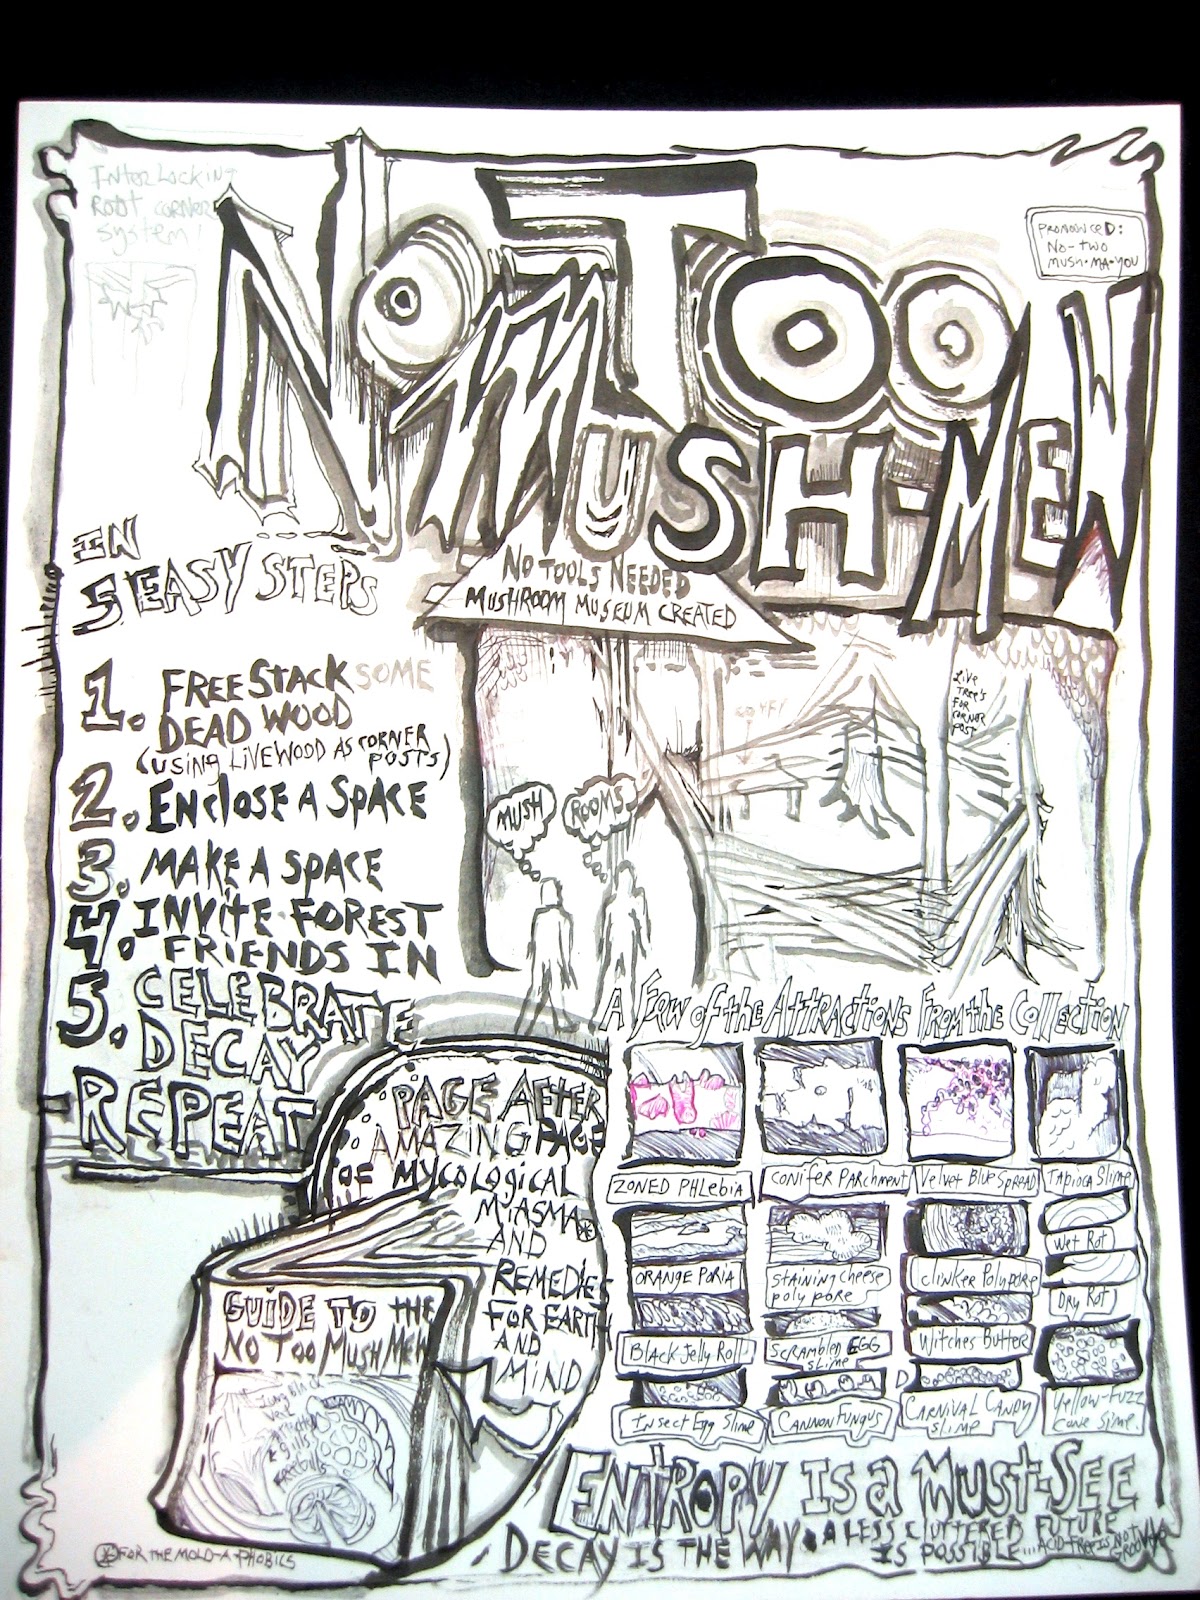 Interlocking
Root corner
system!
No Too
Mush-Mew
PRONOUNCED:
No-two
mush-MA-YOU
IN
5 EASY STEPS
1. FREE STACK SOME
DEAD WOOD
(USING LIVE WOOD AS CORNER
POSTS)
2. ENCLOSE A SPACE
3. MAKE A SPACE
4. INVITE FOREST
FRIENDS IN
5. CELEBRATE
DECAY
REPEAT
NO TOOLS NEEDED
MUSHROOM MUSEUM CREATED
LIVE
TREES
FOR
CORNER
POST
MUSH
ROOMS
PAGE AFTER
AMAZING PAGE
OF MYCOLOGICAL
MIASMA*
AND
REMEDIES
FOR EARTH
AND
MIND
GUIDE TO THE
NO TOO MUSH MEW
* FOR THE MOLD-A-PHOBICS
A Few of the Attractions From the Collection
ZONED PHLEBIA
CONIFER PARCHMENT
Velvet Blue Spread
Tapioca Slime
ORANGE PORIA
STAINING cheese
poly pore
Clinker Polypore
Wet Rot
Dry Rot
Black Jelly Roll
Scrambled EGG
slime
Witches Butter
Insect Egg Slime
CANNON FUNGUS
CARNIVAL CANDY
slime
Yellow-fuzz
cone slime.
ENTROPY IS A MUST-SEE
DECAY IS THE WAY • A LESS CLUTTERED FUTURE
IS POSSIBLE... ACID-FREE IS NOT
GROOVY